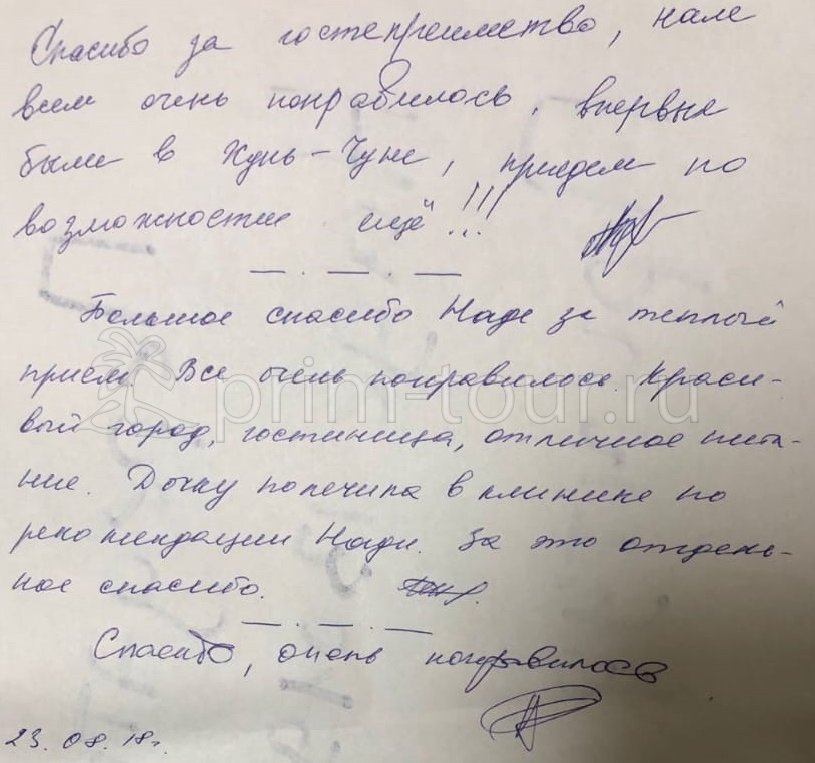 Спасибо за гостеприимство, нам
всем очень понравилось, впервые
были в Хунь-Чуне, приедем по
возможности ещё!!!
Большое спасибо Наде за теплый
прием. Все очень понравилось. Краси-
вый город, гостиница, отличное пита-
ние. Дочку полечила в клинике по
рекомендации Нади. За это отдель-
ное спасибо.
Спасибо, очень понравилось
23.08.18г.
prim-tour.ru